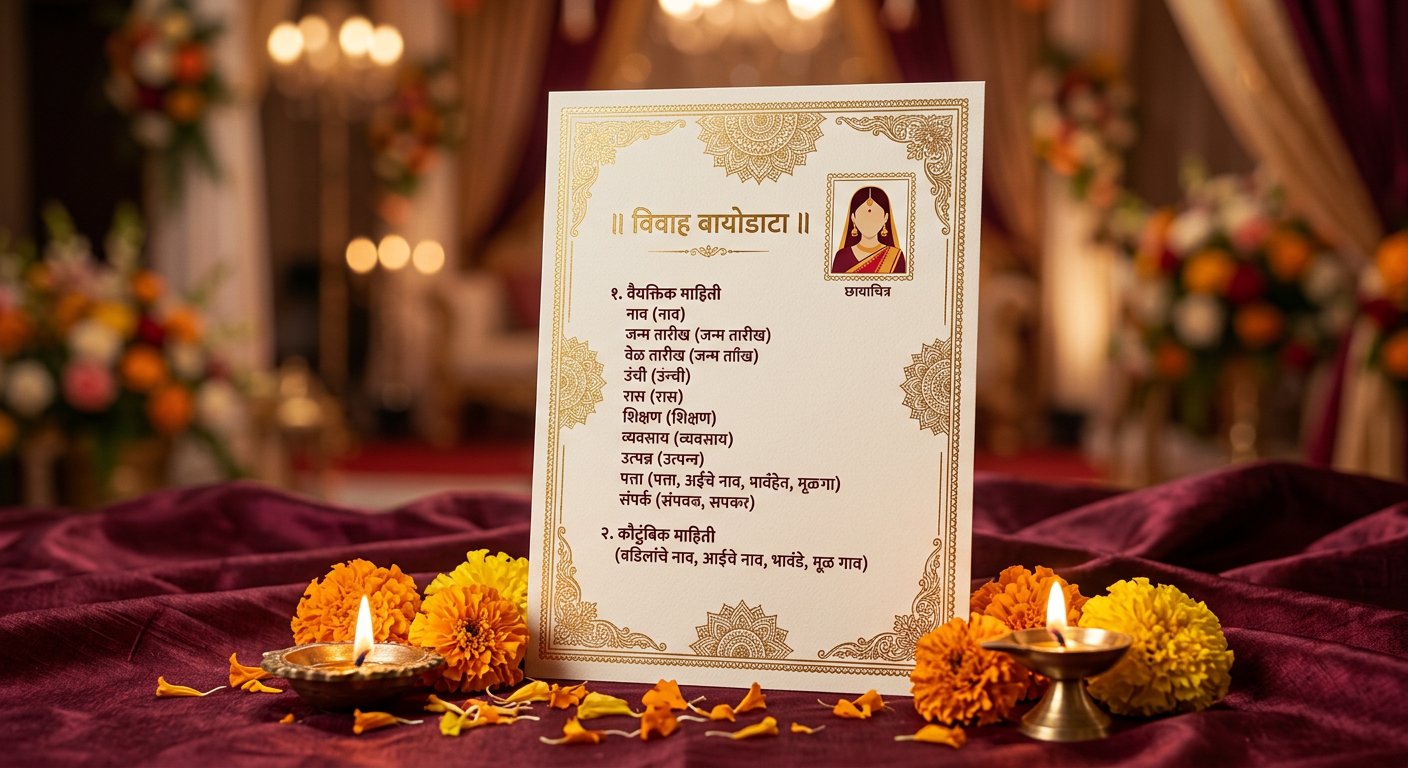 ॥ विवाह बायोडाटा ॥
छायाचित्र
१. वैयक्तिक माहिती
नाव (नाव)
जन्म तारीख (जन्म तारीख)
वेळ तारीख (जन्म
उंची (उंन्ची)
रास (रास)
शिक्षण (शिक्षण)
व्यवसाय (व्यवसाय)
उत्पन्न (उत्पन्न)
पत्ता (पत्ता, अईचे नाव, मूळगा)
संपर्क (संपवळ, सपकर)
२. कौटुंबिक माहिती
(वडिलांचे नाव, आईवे नाव, भावंडे, मूळ गाव)